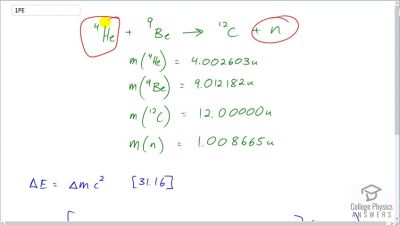 1PE
⁴He + ⁹Be → ¹²C + n
m(⁴He) = 4.002603u
m(⁹Be) = 9.012182u
m(¹²C) = 12.00000u
m(n) = 1.008665u
ΔE = Δmc² [31.16]
College Physics
ANSWERS